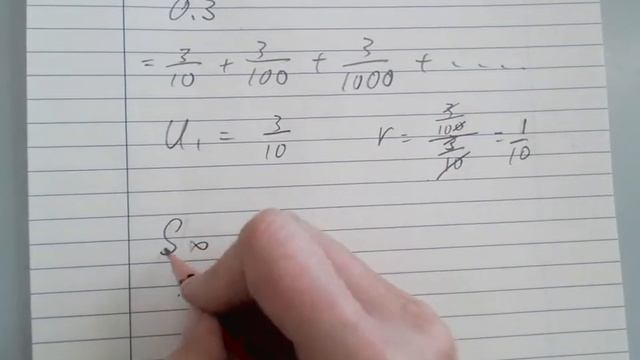 0.3
= 3/10 + 3/100 + 3/1000 + ....
U₁ = 3/10 r = (3/100)/(3/10) = 1/10
S∞